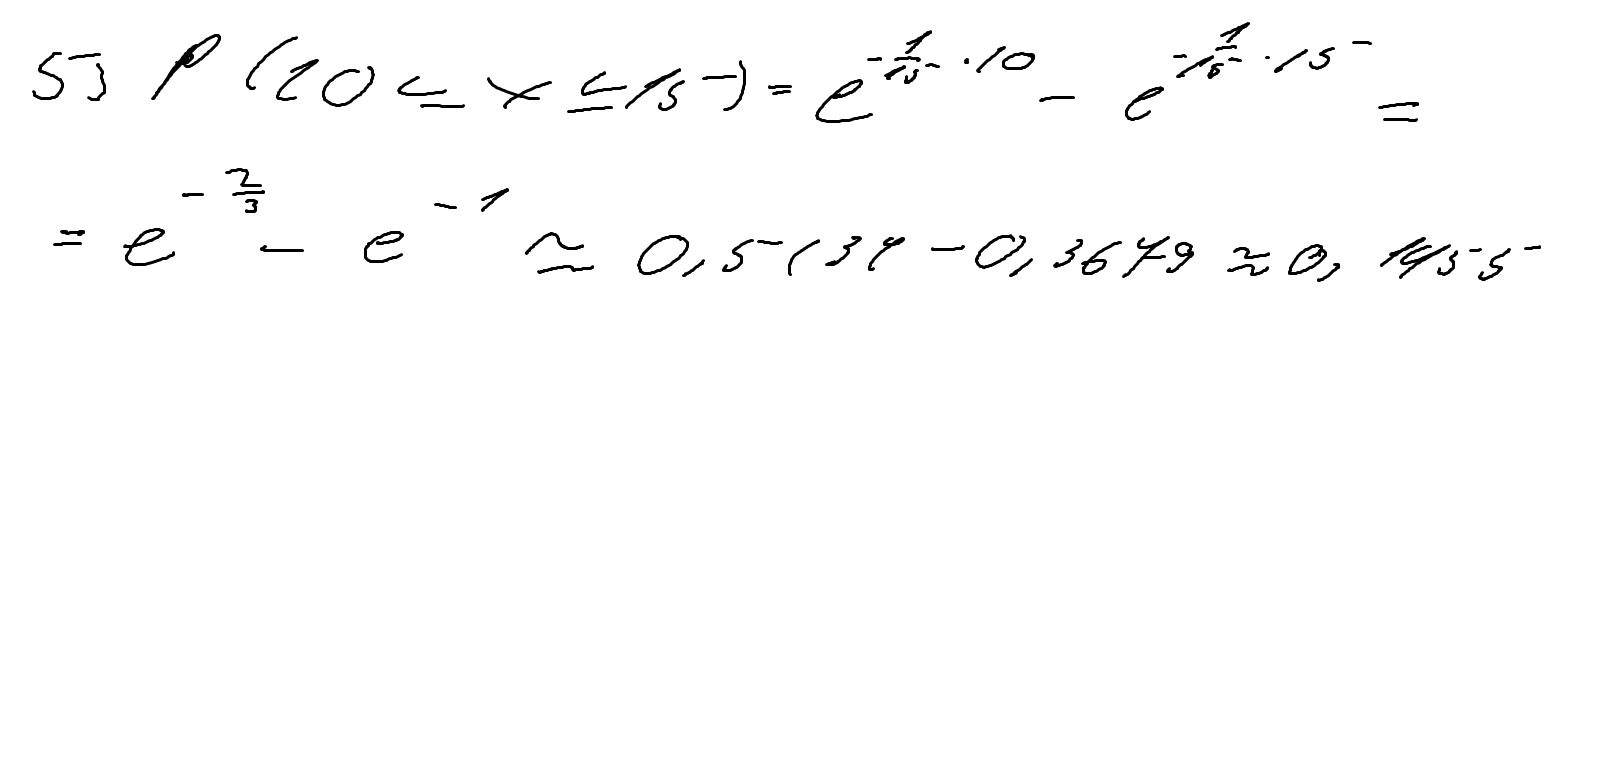 5) P(10 ≤ x ≤ 15) = e^{-\frac{1}{15} · 10} - e^{-\frac{1}{15} · 15} =
= e^{-\frac{2}{3}} - e^{-1} ≈ 0,5134 - 0,3679 ≈ 0,1455